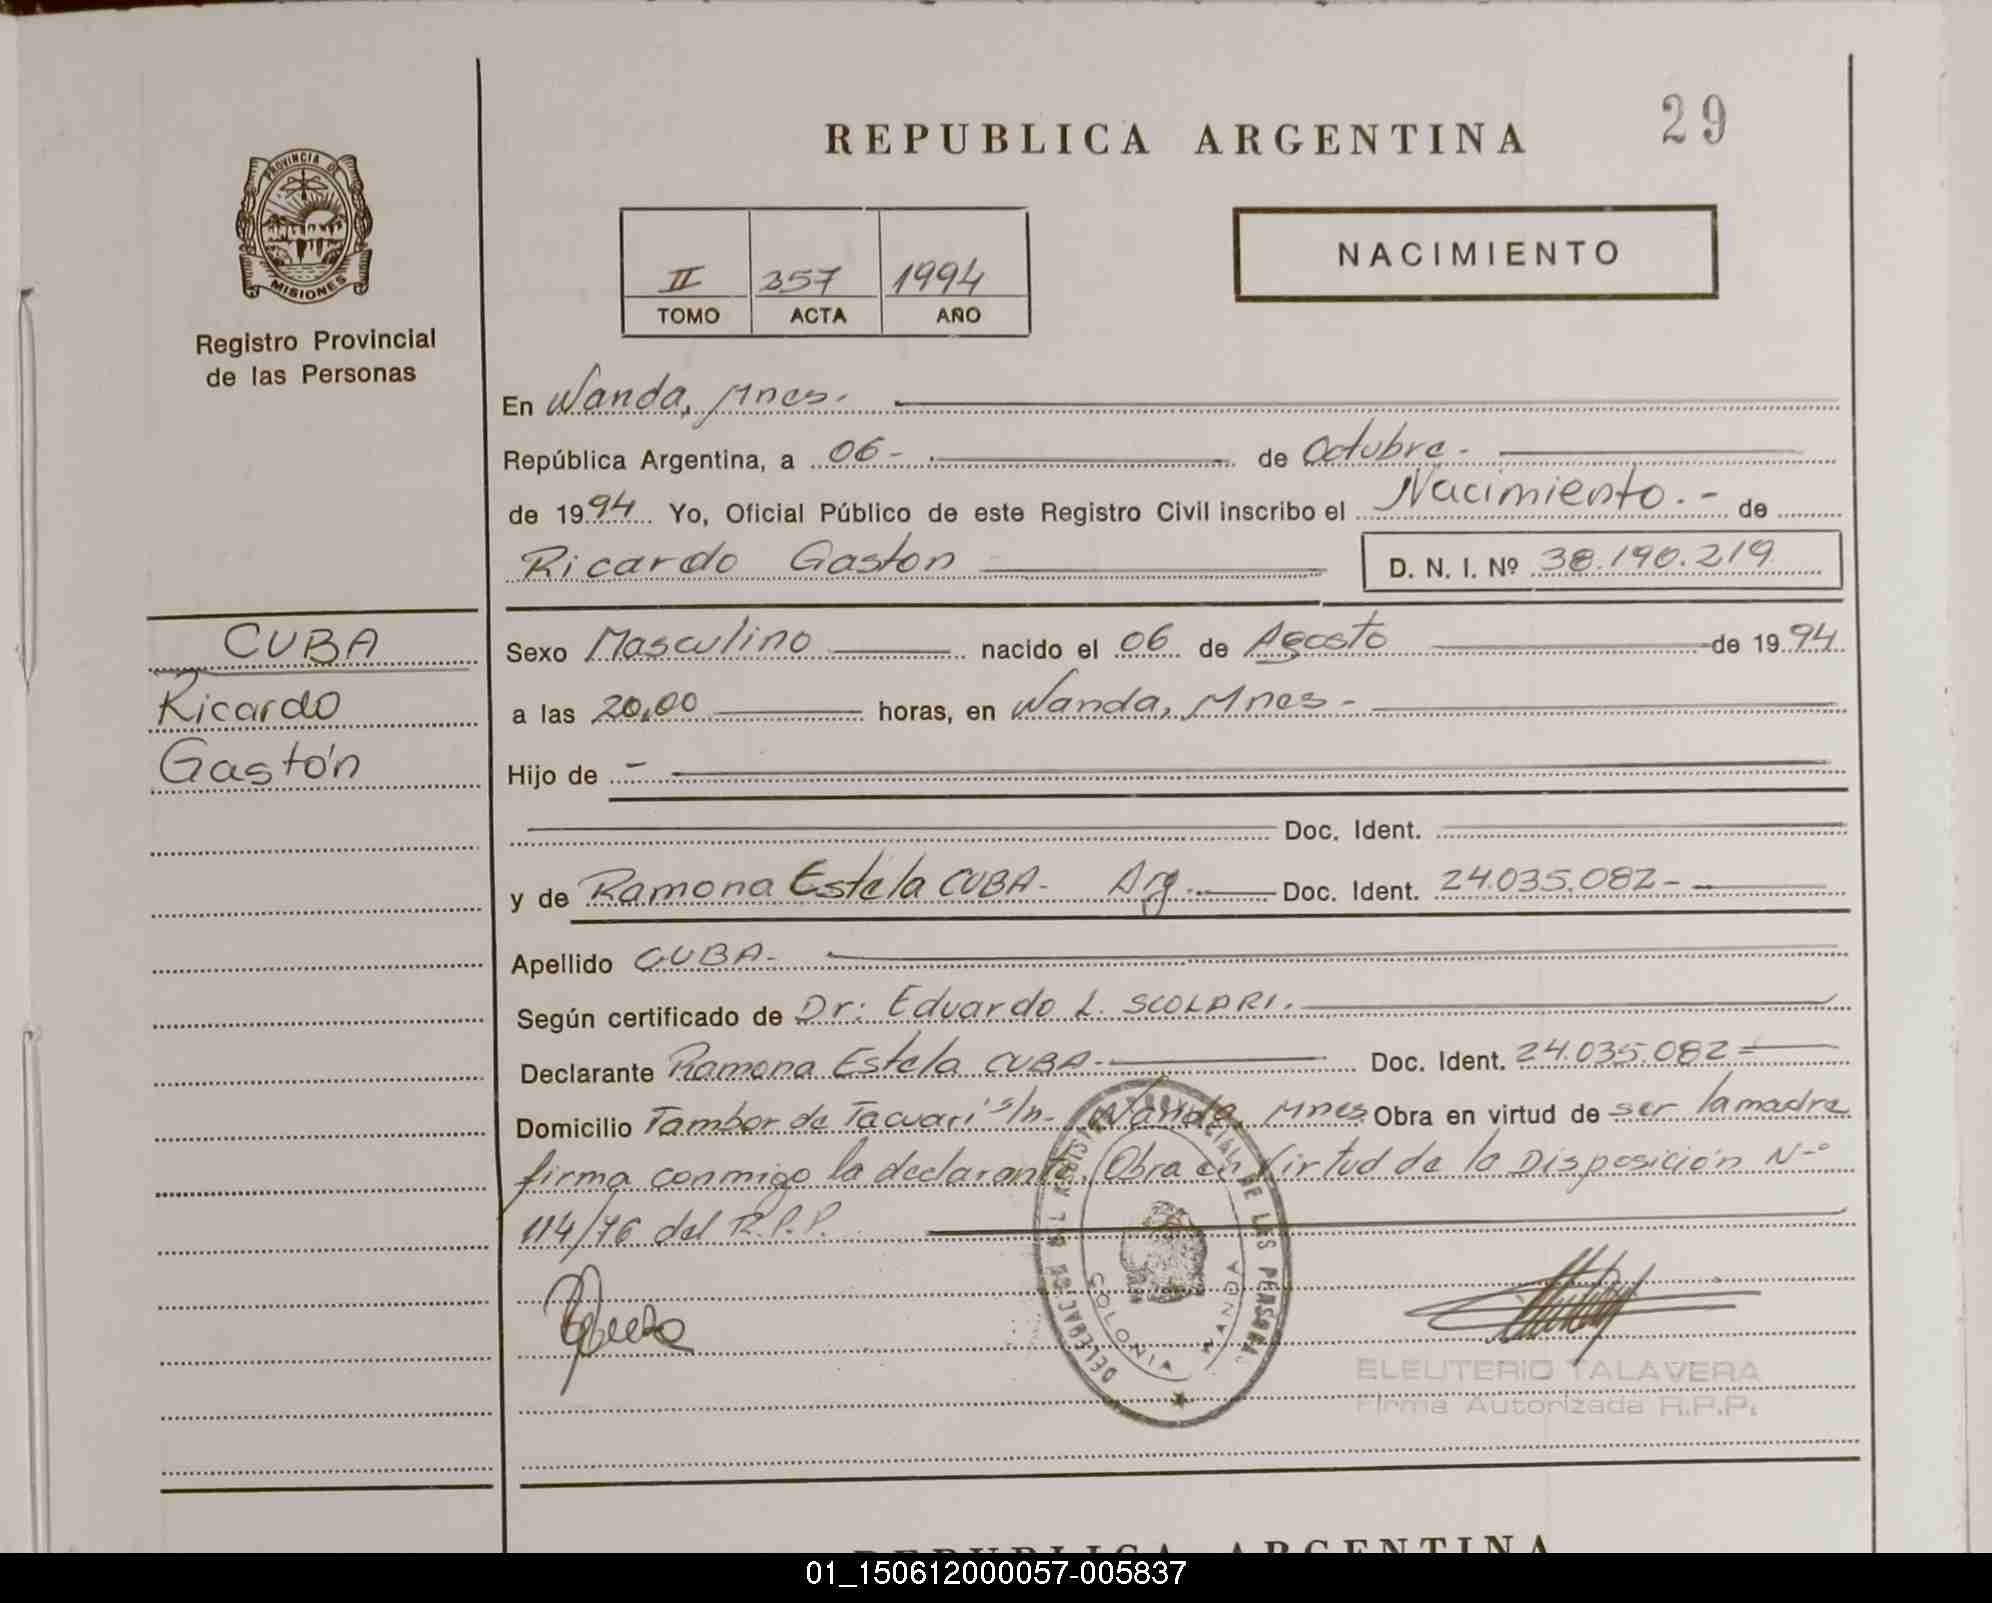 REPUBLICA ARGENTINA
29
PROVINCIA DE
MISIONES
Registro Provincial
de las Personas
II 357 1994
TOMO ACTA AÑO
NACIMIENTO
En Wanda, Mnes.
República Argentina, a 06- de Octubre-
de 1994 Yo, Oficial Público de este Registro Civil inscribo el Nacimiento.- de
Ricardo Gaston D. N. I. Nº 38.190.219
CUBA
Ricardo
Gastón
Sexo Masculino nacido el 06 de Agosto de 1994
a las 20,00 horas, en Wanda, Mnes-
Hijo de -
Doc. Ident.
y de Ramona Estela CUBA- Arg.- Doc. Ident. 24.035.082-
Apellido CUBA-
Según certificado de Dr: Eduardo L. SCOLARI.
Declarante Ramona Estela CUBA- Doc. Ident. 24.035.082=
Domicilio Tambor de Tacuari s/n- Wanda, Mnes Obra en virtud de ser la madre
firma conmigo la declarante. Obra en virtud de la Disposición N-º
114/76 del R.P.P.
DELEGACION DEL REGISTRO PROVINCIAL DE LAS PERSONAS
COLONIA WANDA
ELEUTERIO TALAVERA
Firma Autorizada R.P.P.
REPUBLICA ARGENTINA
01_150612000057-005837